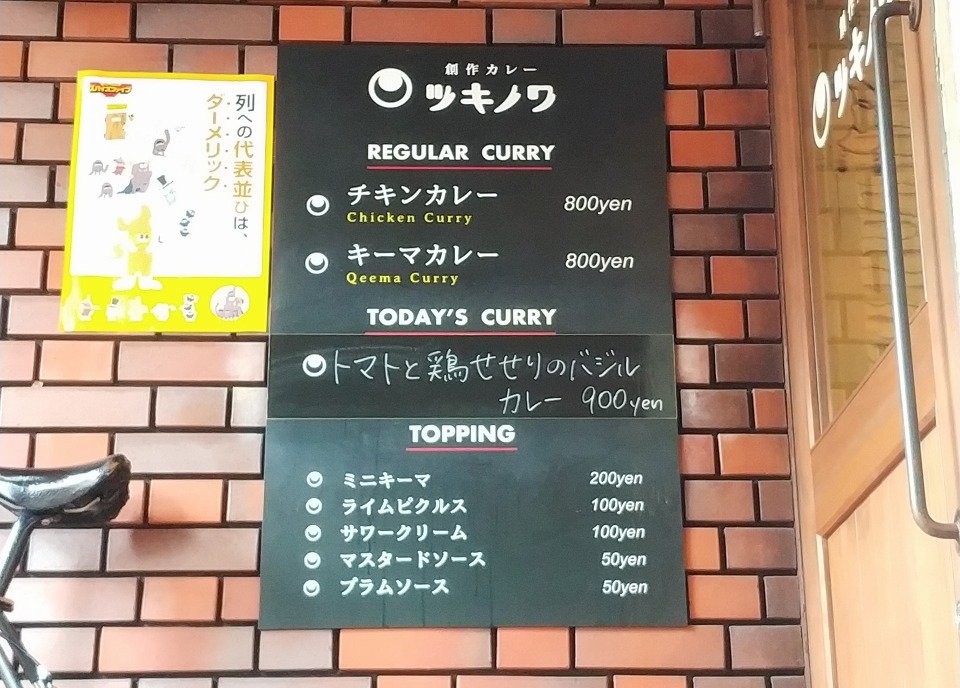 スパイスファイブ
列への代表並びは、
ターメリック
創作カレー
ツキノワ
REGULAR CURRY
チキンカレー 800yen
Chicken Curry
キーマカレー 800yen
Qeema Curry
TODAY'S CURRY
トマトと鶏せせりのバジル
カレー 900yen
TOPPING
ミニキーマ 200yen
ライムピクルス 100yen
サワークリーム 100yen
マスタードソース 50yen
プラムソース 50yen
ツキノ